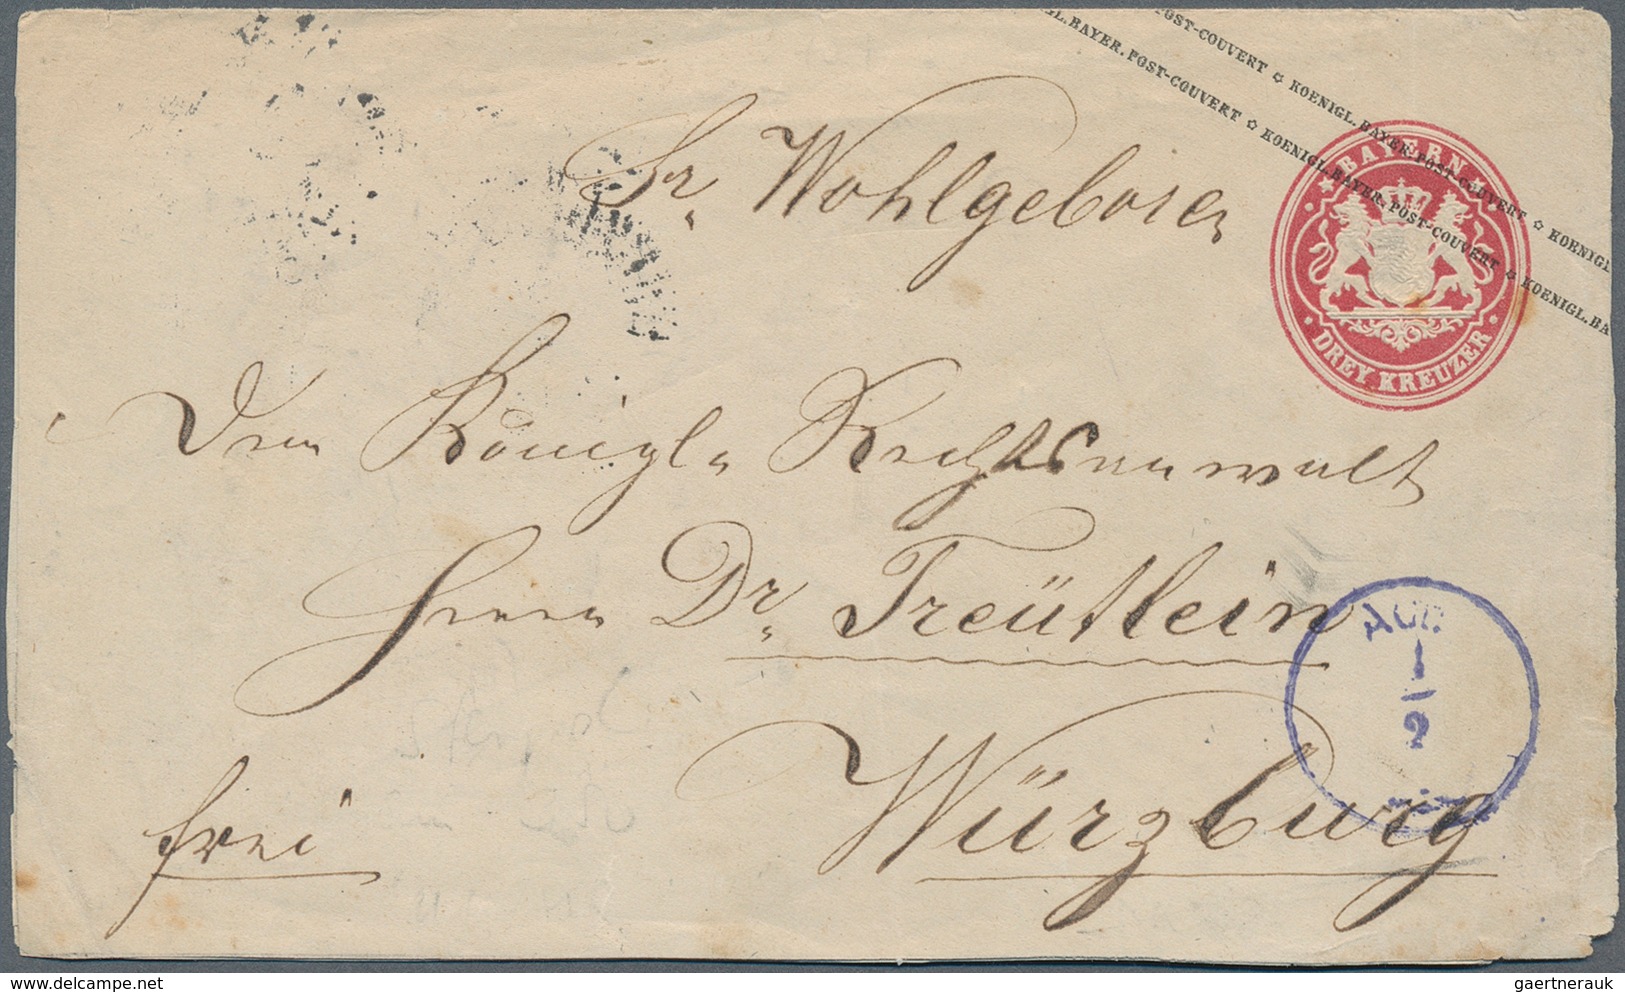 POST-COUVERT ✡ KOENIGL. BAYER. POST-COUVERT ✡ KOENIGL
GL. BAYER. POST-COUVERT ✡ KOENIGL. BAYER. POST-COUVERT ✡ KOENIGL. BA
BAYERN
DREY KREUZER
Sr. Wohlgeboren
Dem Königl. Rechtsanwalt
Herrn Dr. Treütlein
Würzburg
frei
1
2
delcampe.net
gaertnerauk